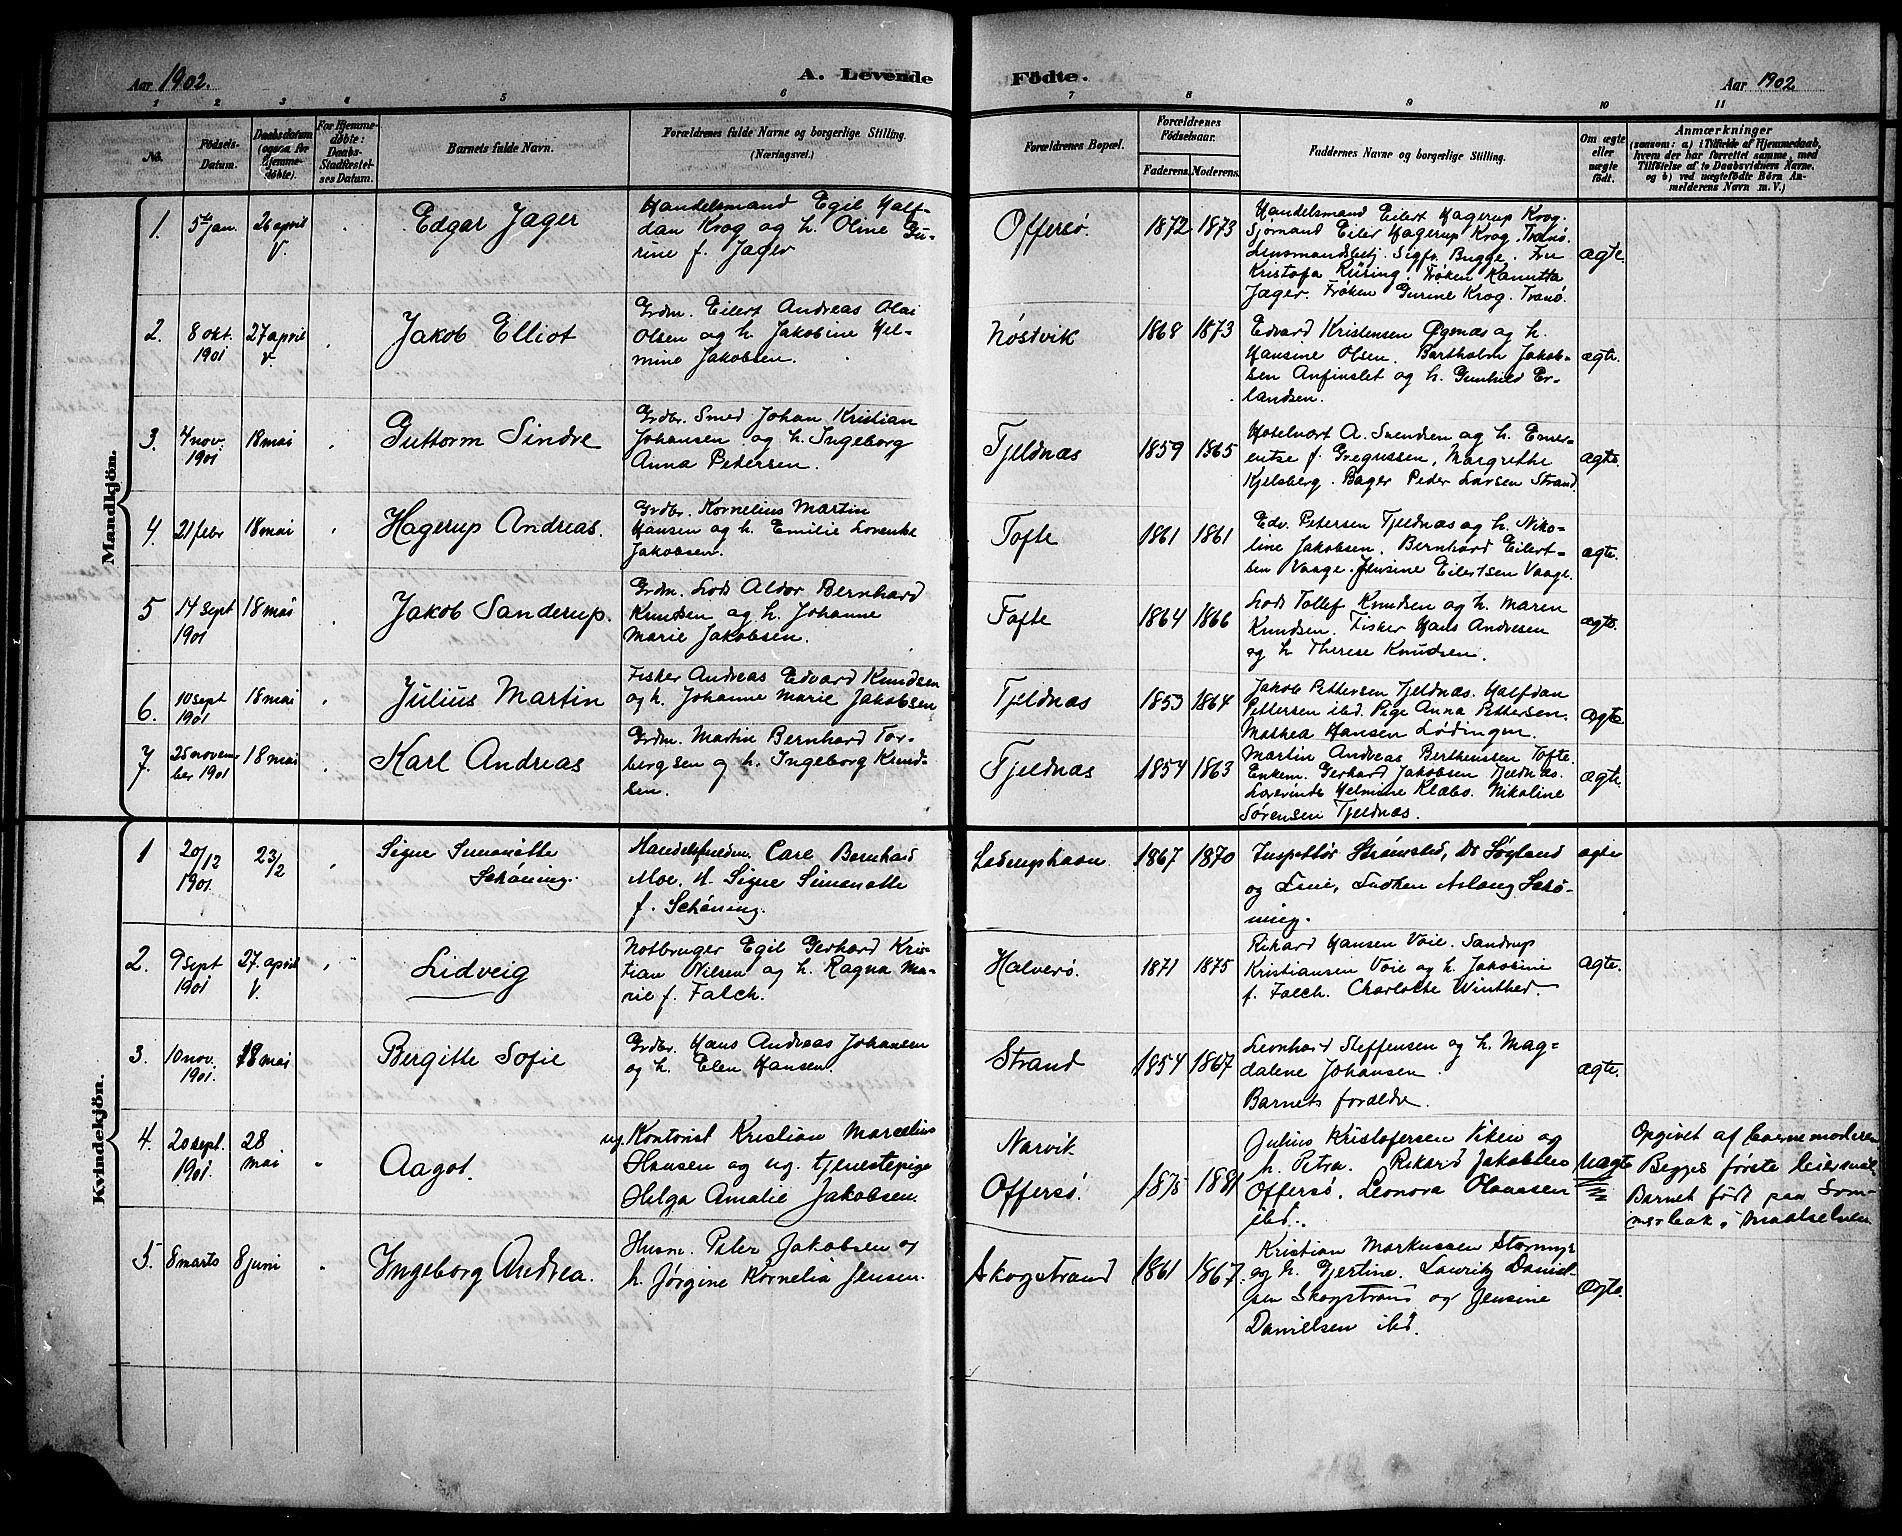 Aar 1902.
A. Levende Fødte.
Aar 1902
1 2 3 4 5 6 7 8 9 10 11
No.
Fødsels-
Datum.
Daabsdatum
(ogsaa for
Hjemme-
døbte).
For Hjemme-
døbte:
Daabs-
Stadfæstel-
ses Datum.
Barnets fulde Navn.
Forældrenes fulde Navne og borgerlige Stilling.
(Næringsvei.)
Forældrenes Bopæl.
Forældrenes
Fødselsaar.
Faderens. Moderens.
Faddernes Navne og borgerlige Stilling.
Om ægte
eller
uægte
født.
Anmærkninger
(saasom: a) i Tilfælde af Hjemmedaab,
hvem der har forrettet samme, med
Tilføielse af to Daabsvidners Navne,
og b) ved uægtefødte Børn An-
melderens Navn m. V.)
Mandkjön.
1.
5te jan.
26 april
V.
Edgar Jager
Handelsmand Egil Half-
dan Krog og h. Oline Gu-
rine f. Jager
Offersø.
1872 1873
Handelsmand Eilert Hagerup Krog.
Sjømand Eiler Hagerup Krog. Tranø.
Lensmandsbetj. Sigfr. Bugge. Fru
Kristofa Rüring. Frøken Kanutta
Jager. Frøken Gurine Krog. Tranø.
ægte.
2.
8 okt.
1901
27 april
V.
Jakob Elliot
Grdm. Eilert Andreas Olai
Olsen og h. Jakobine Hel-
mine Jakobsen.
Nøstvik
1868 1873
Edvard Kristensen Øgsnæs og h.
Hansine Olsen. Bartholm Jakob-
sen Anfinslet og h. Gunhild Er-
landsen.
ægte.
3.
4 nov.
1901
18 mai
Guttorm Sindre
Grdbr. Smed Johan Kristian
Johansen og h. Ingeborg
Anna Petersen.
Tjeldnæs
1859 1865
Hotelvært A. Svendsen og h. Emer-
entse f. Gregussen, Margrethe
Kjelsberg. Bager Peder Larsen Strand.
ægte.
4.
21 febr
18 mai
Hagerup Andreas.
Grdbr. Kornelius Martin
Hansen og h. Emilie Lorentse
Jakobsen.
Tofte
1861 1861
Edv. Petersen Tjeldnæs og h. Niko-
line Jakobsen. Bernhard Eilert-
sen Vaage. Jensine Eilertsen Vaage.
ægte.
5
14 sept
1901
18 mai
Jakob Sanderup.
Grdm. Lods Aldor Bernhard
Knudsen og h. Johanne
Marie Jakobsen.
Tofte
1864 1866
Lods Tollef Knudsen og h. Maren
Knudsen. Fisker Hans Andresen
og h. Therese Knudsen.
ægte.
6.
10 sept
1901
18 mai
Julius Martin
Fisker Andreas Edvard Knudsen
og h. Johanne Marie Jakobsen
Tjeldnæs
1853 1864
Jakob Pettersen Tjeldnæs. Halfdan
Pettersen ibd. Pige Anna Pettersen.
Mathea Hansen Lødingen.
ægte
7.
25 novem-
ber 1901
18 mai
Karl Andreas
Grdm. Martin Bernhard Tor-
bergsen og h. Ingeborg Knud-
sen.
Tjeldnæs
1854 1863
Martin Andreas Berthenssen Tofte.
Enkem. Gerhard Jakobsen Tjeldnæs.
Helmine Klæbo. Nikoline
Sørensen Tjeldnæs.
ægte.
Kvindekjön.
1
20/12
1901
23/2
Signe Simonette
Schöning.
Carl Bernhard
Moe. H. Signe Simonette
f. Schöning.
Lødingshavn
1867 1870
Inspektør Strømsted, Dr Søyland
og Frue, Frøken Aslaug Schö-
ning.
ægte
2.
9 sept
1901
27. april
V.
Lidveig
Notbruger Egil Gerhard Kris-
tian Nilsen og h. Ragna Ma-
rie f. Falch.
Halverø.
1871 1875
Rikard Hansen Voie. Sandrup
Kristiansen Voie og h. Jakobine
f. Falch. Charlotte Winther.
ægte.
3.
10 nov.
1901.
18 mai
Bergitte Sofie
Grdbr. Hans Andreas Johansen
og h. Elen Hansen.
Strand
1854 1867
Leonhard Steffensen og h. Mag-
dalene Johansen.
Barnets forældre.
ægte.
4.
20 sept.
1901.
28
mai
Aagot.
ug. Kontorist Kristian Marcelius
Hansen og ug. tjenestepige
Helga Amalie Jakobsen.
Narvik
Offersø.
1875 1881
Julius Kristofersen Viken og
h. Petra. Rikard Jakobsen
Offersø. Leonora Olaussen
ibd.
Uægte
Opgivet af barnemoderen
Begges første leiersmaal
Barnet født paa Som-
merbak i Maalselven
5.
8 marts
8 juni
Ingeborg Andrea.
Husm. Peter Jakobsen og
h. Jørgine Kornelia Jensen.
Skogstrand
1861 1867.
Kristian Markussen Storny
og h. Gjertine. Lauritz Daniel-
sen Skogstrand og Jensine
Danielsen ibd.
ægte.